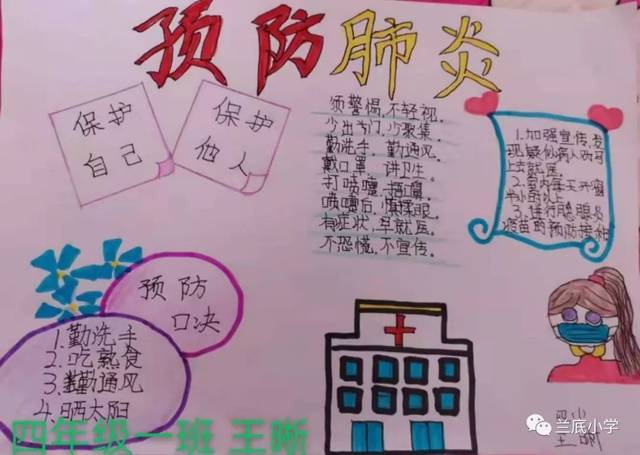 预防肺炎
保护
自己
保护
他人
须警惕,不轻视.
少出门,少聚集.
勤洗手,勤通风.
戴口罩,讲卫生.
打喷嚏,捂口鼻.
喷嚏后,慎揉眼.
有症状,早就医.
不恐慌,不宣传.
1.加强宣传,发
现疑似病人应马
上就医。
2.室内每天开窗
半小时以上
3.进行
疫苗的预防接种
预防
口决
1.勤洗手
2.吃熟食
3.勤通风
4.晒太阳
四年级一班 王晰
王晰
兰底小学